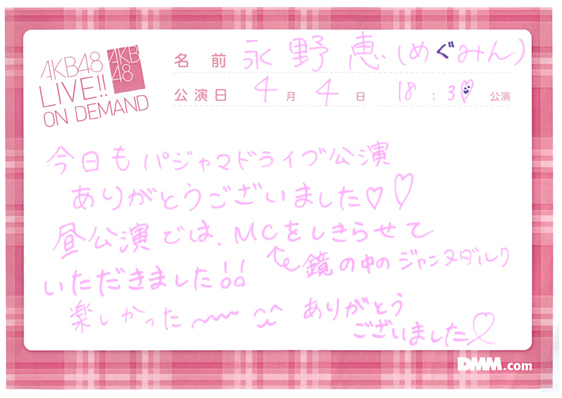 AKB48
LIVE!!
ON DEMAND
AKB
48
名前 永野恵(めぐみん)
公演日 4月4日 18:30公演
今日もパジャマドライブ公演
ありがとうございました♡♡
昼公演では、MCをしきらせて
いただきました!!
鏡の中のジャンヌダルク
楽しかった〜〜
ありがとう
ございました
DMM.com